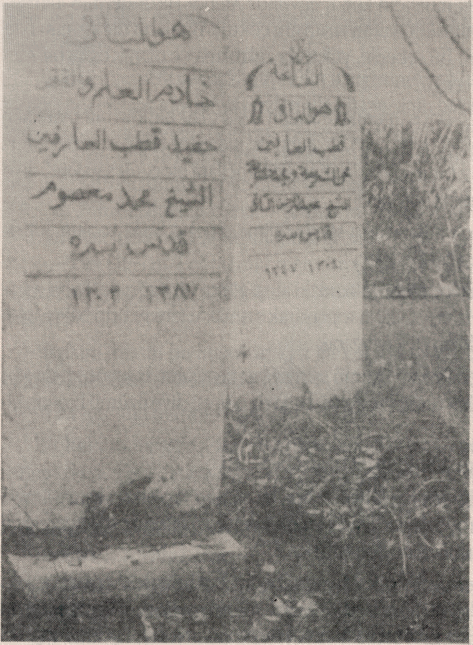 الفاتحة
هو الباقي
قطب العارفين
الشيخ
قدس سره
١٣٠٤ ١٢٤٧
هو الباقي
خادم العلم والفقر
حفيد قطب العارفين
الشيخ محمد معصوم
قدس سره
١٣٨٧ ١٣٠٣